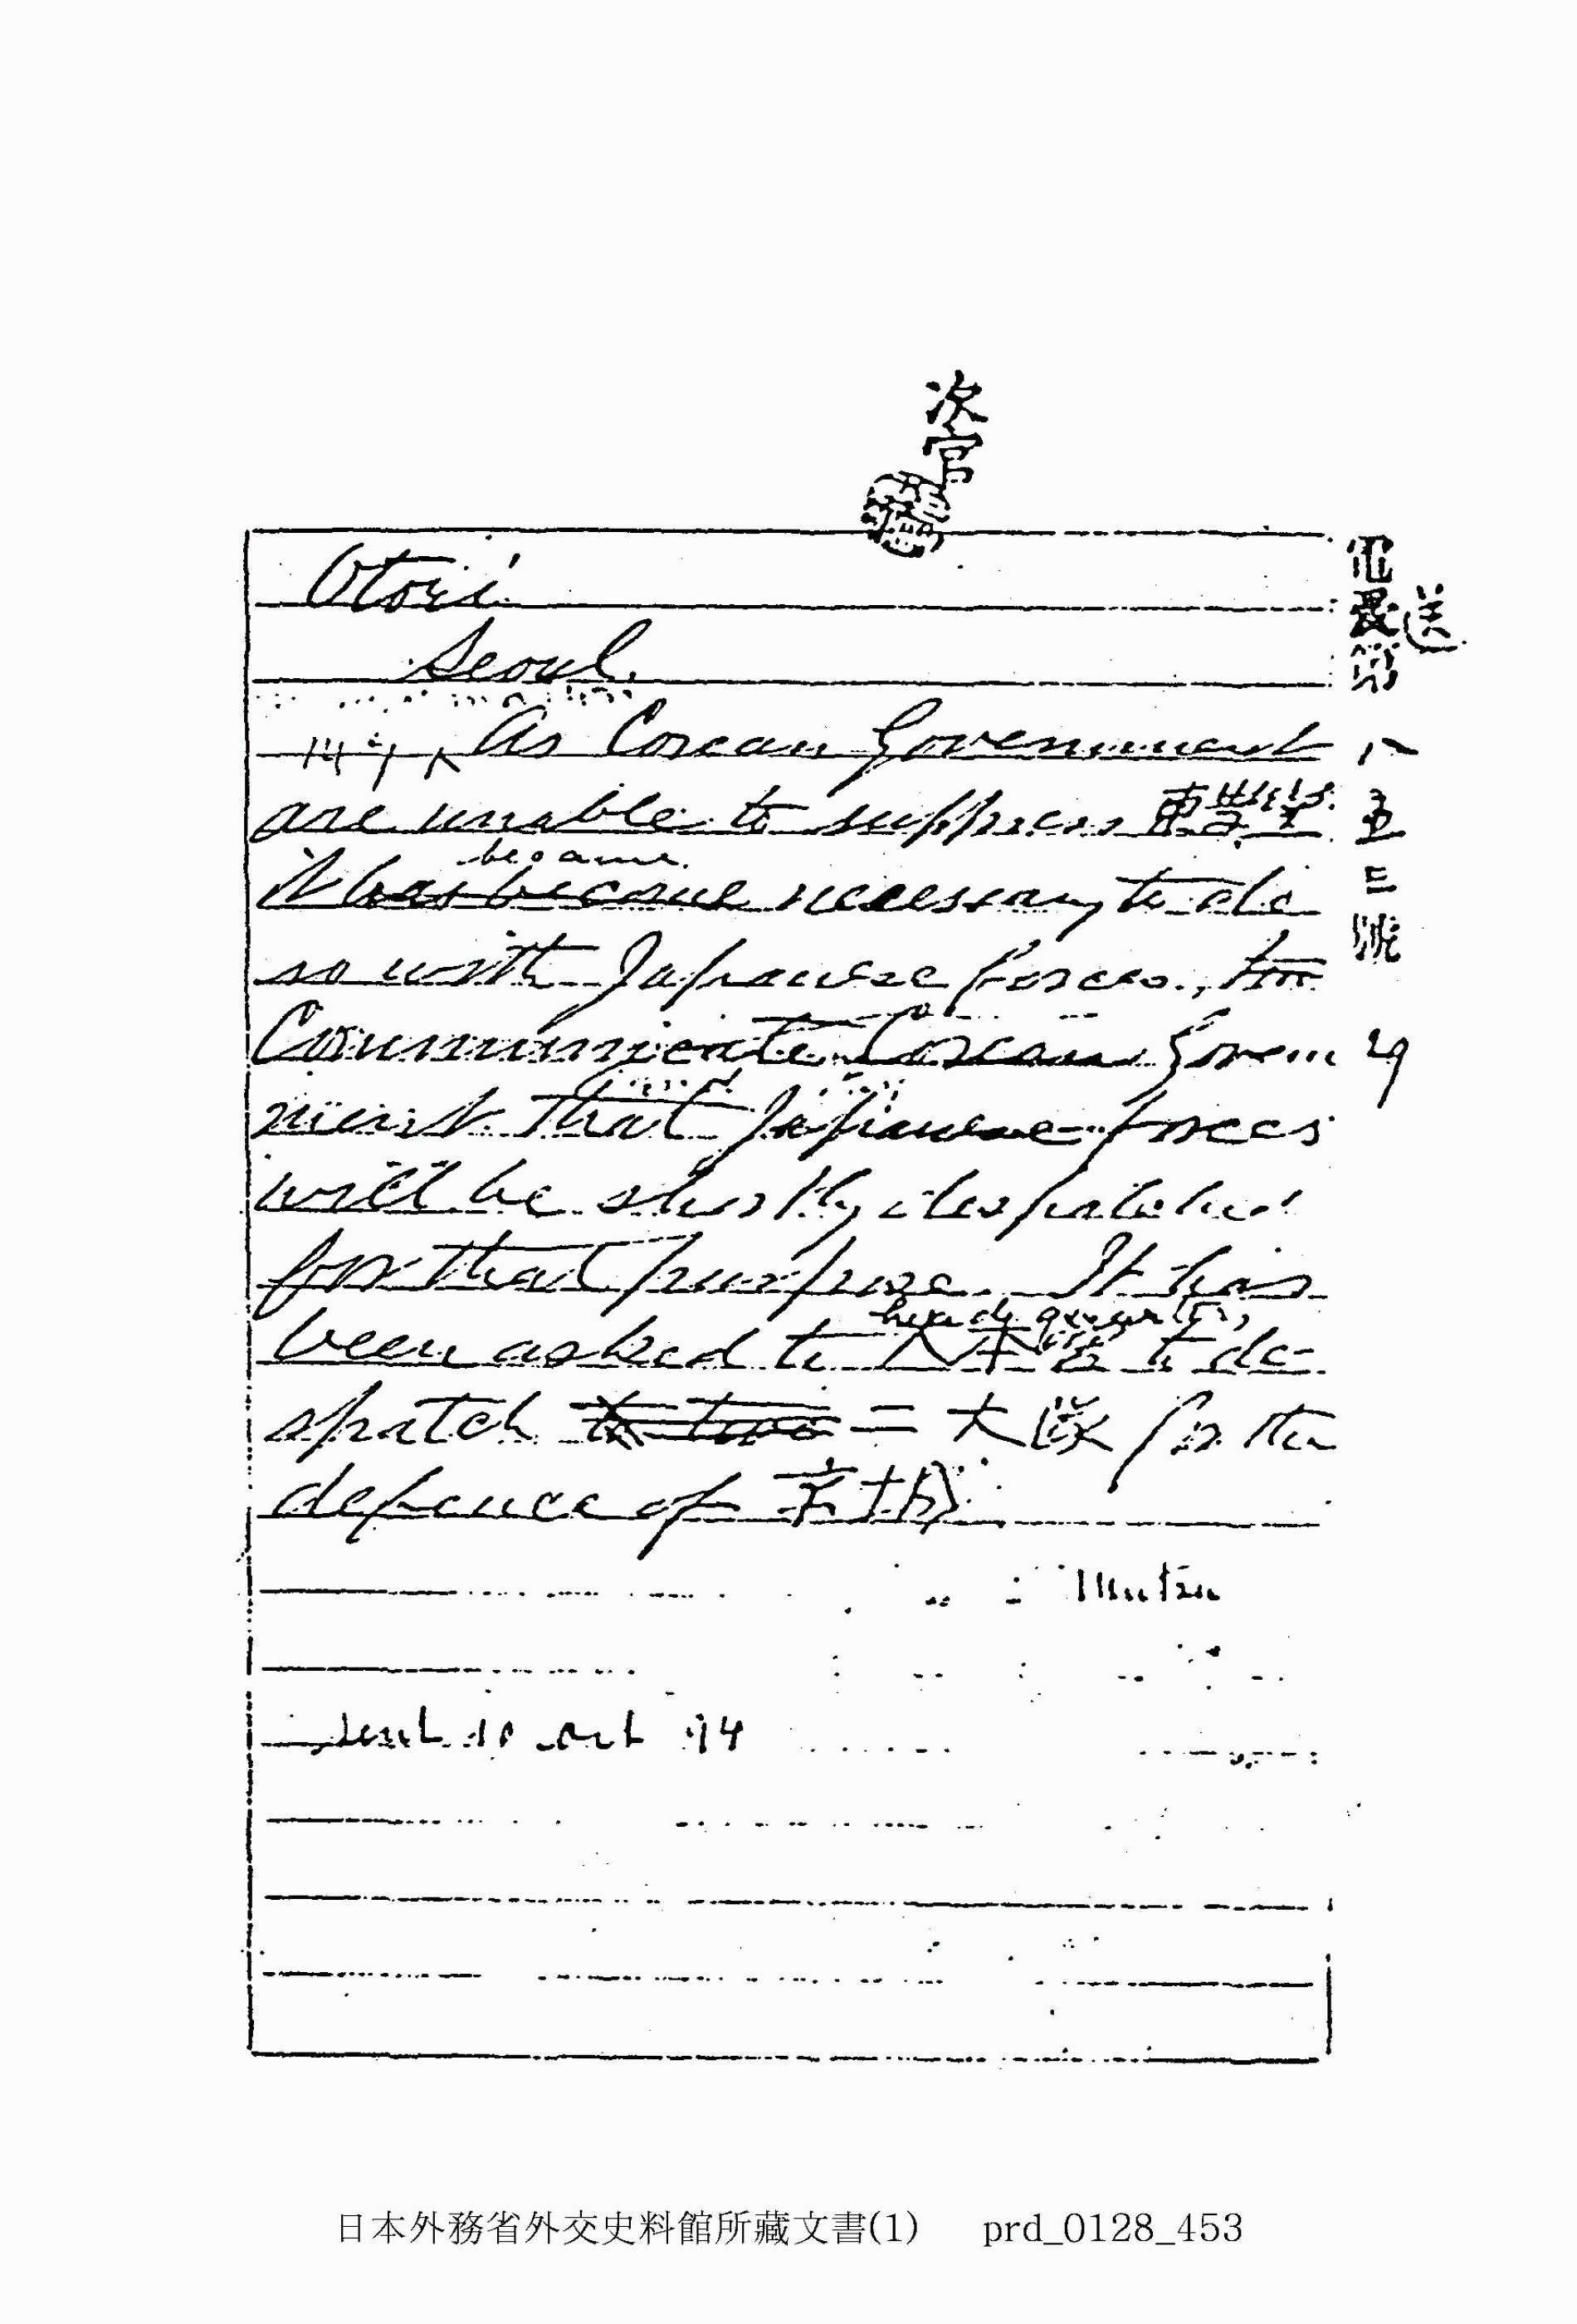 次官
電送第八五三號
Otori
Seoul.
As Corean Government
are unable to suppress 東學党
became
it has become necessary to do
so with Japanese forces,
Communicate Corean Govern
ment that Japanese forces
will be shortly despatched
for that purpose. It has
been asked to 大本營 to de-
head quarters
spatch to two 二大隊 for the
defence of 京城
Mutsu
Sent
日本外務省外交史料館所藏文書(1) prd_0128_453